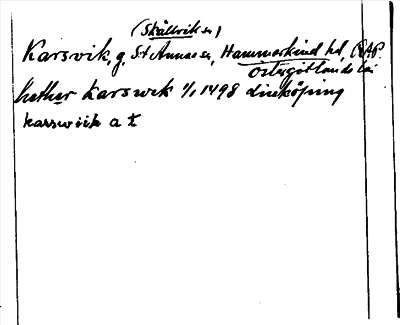 (Skällvik sn)
Karsvik, g, St Annas sn, Hammarkind hd, RAP.
Östergötlands län
hether karswek 1/1 1498 Linköping
karswiik a t